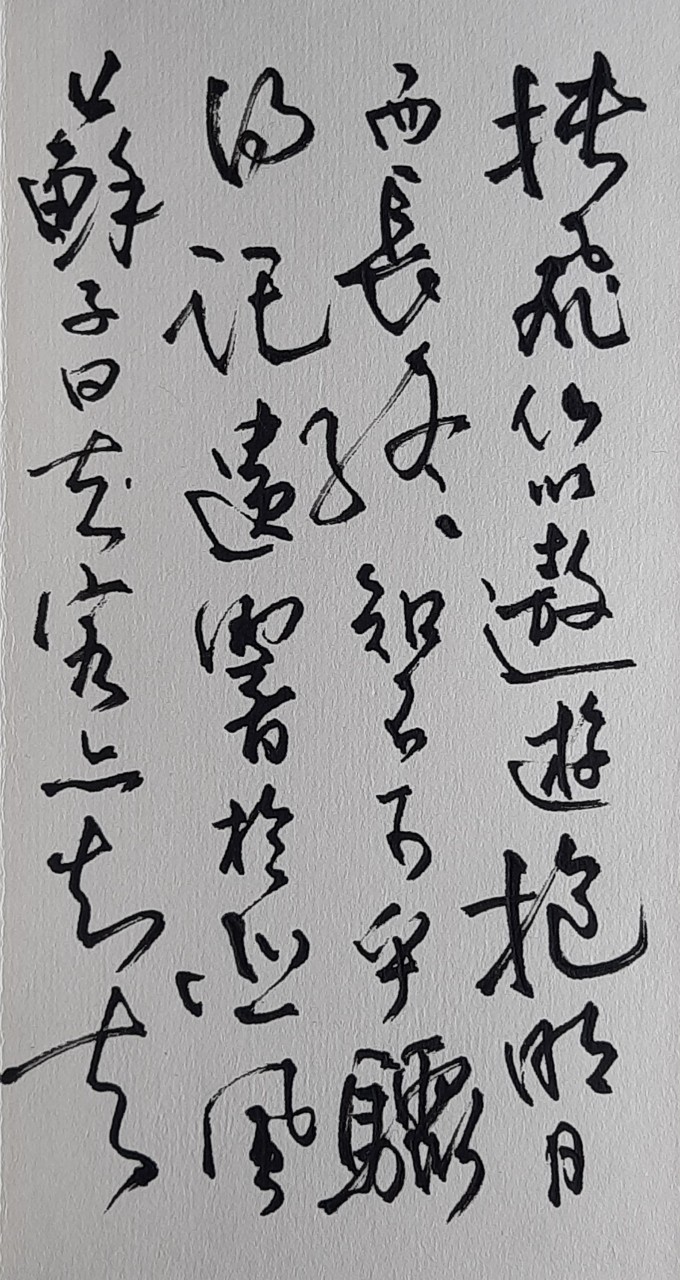 挾飛仙以遨遊抱明月
而長終知不可乎驟
得託遺響於悲風
蘇子曰客亦知夫